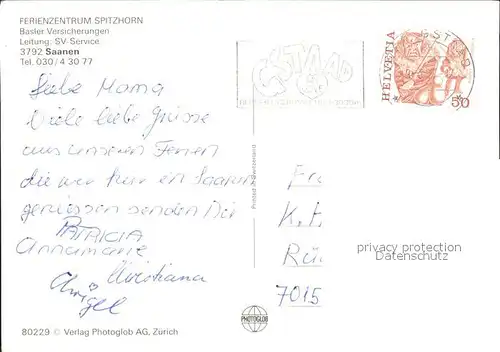 FERIENZENTRUM SPITZHORN
Basler Versicherungen
Leitung: SV-Service
3792 Saanen
Tel. 030/4 30 77
GSTAAD
HELVETIA
50
Liebe Mama
Viele liebe Grüsse
aus unseren Ferien
die wir hier in Saanen
geniessen senden Dir
PATRICIA
Annamarie
Christiana
Chrigel
Printed in Switzerland
Fr
K.
Rü
7015
privacy protection
Datenschutz
PHOTOGLOB
80229 © Verlag Photoglob AG, Zürich